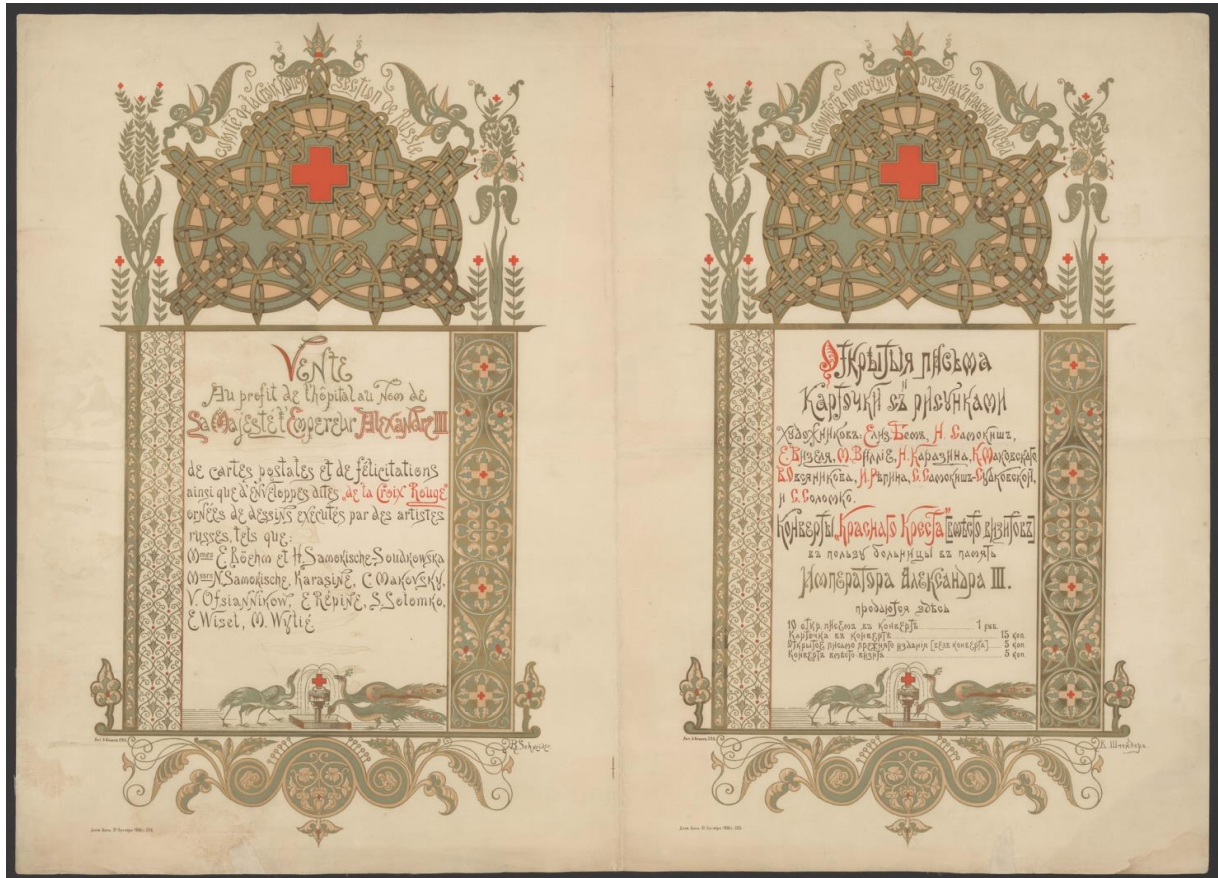 Comité de la Croix Rouge Section de Russie
Vente
Au profit de l'hôpital au Nom de
Sa Majesté l'Empereur Alexandre III
de cartes postales et de félicitations
ainsi que d'enveloppes dites "de la Croix Rouge"
ornées de dessins exécutés par des artistes
russes, tels que:
Mmes E. Böehm et H. Samokische-Soudkowska
Mrs N. Samokische, Karasine, C. Makovsky,
V. Ofsiannikow, E. Répine, S. Solomko,
E. Wisel, M. Wylié
Комитетъ попеченія о сестрахъ Краснаго Креста
Открытыя письма
и
Карточки съ рисунками
Художниковъ: Елиз. Бемъ, Н. Самокишъ,
Е. Визеля, М. Вилліе, Н. Каразина, К. Маковскаго,
В. Овсяникова, И. Рѣпина, Е. Самокишъ-Судковской,
и С. Соломко.
Конверты "Краснаго Креста" [вмѣсто визитовъ]
въ пользу больницы въ память
Императора Александра III.
продаются здѣсь
10 откр. писемъ въ конвертѣ 1 руб.
Карточка въ конвертѣ 15 коп.
Открытое письмо прежняго изданія [безъ конверта] 5 коп.
Конвертъ вмѣсто визита 5 коп.